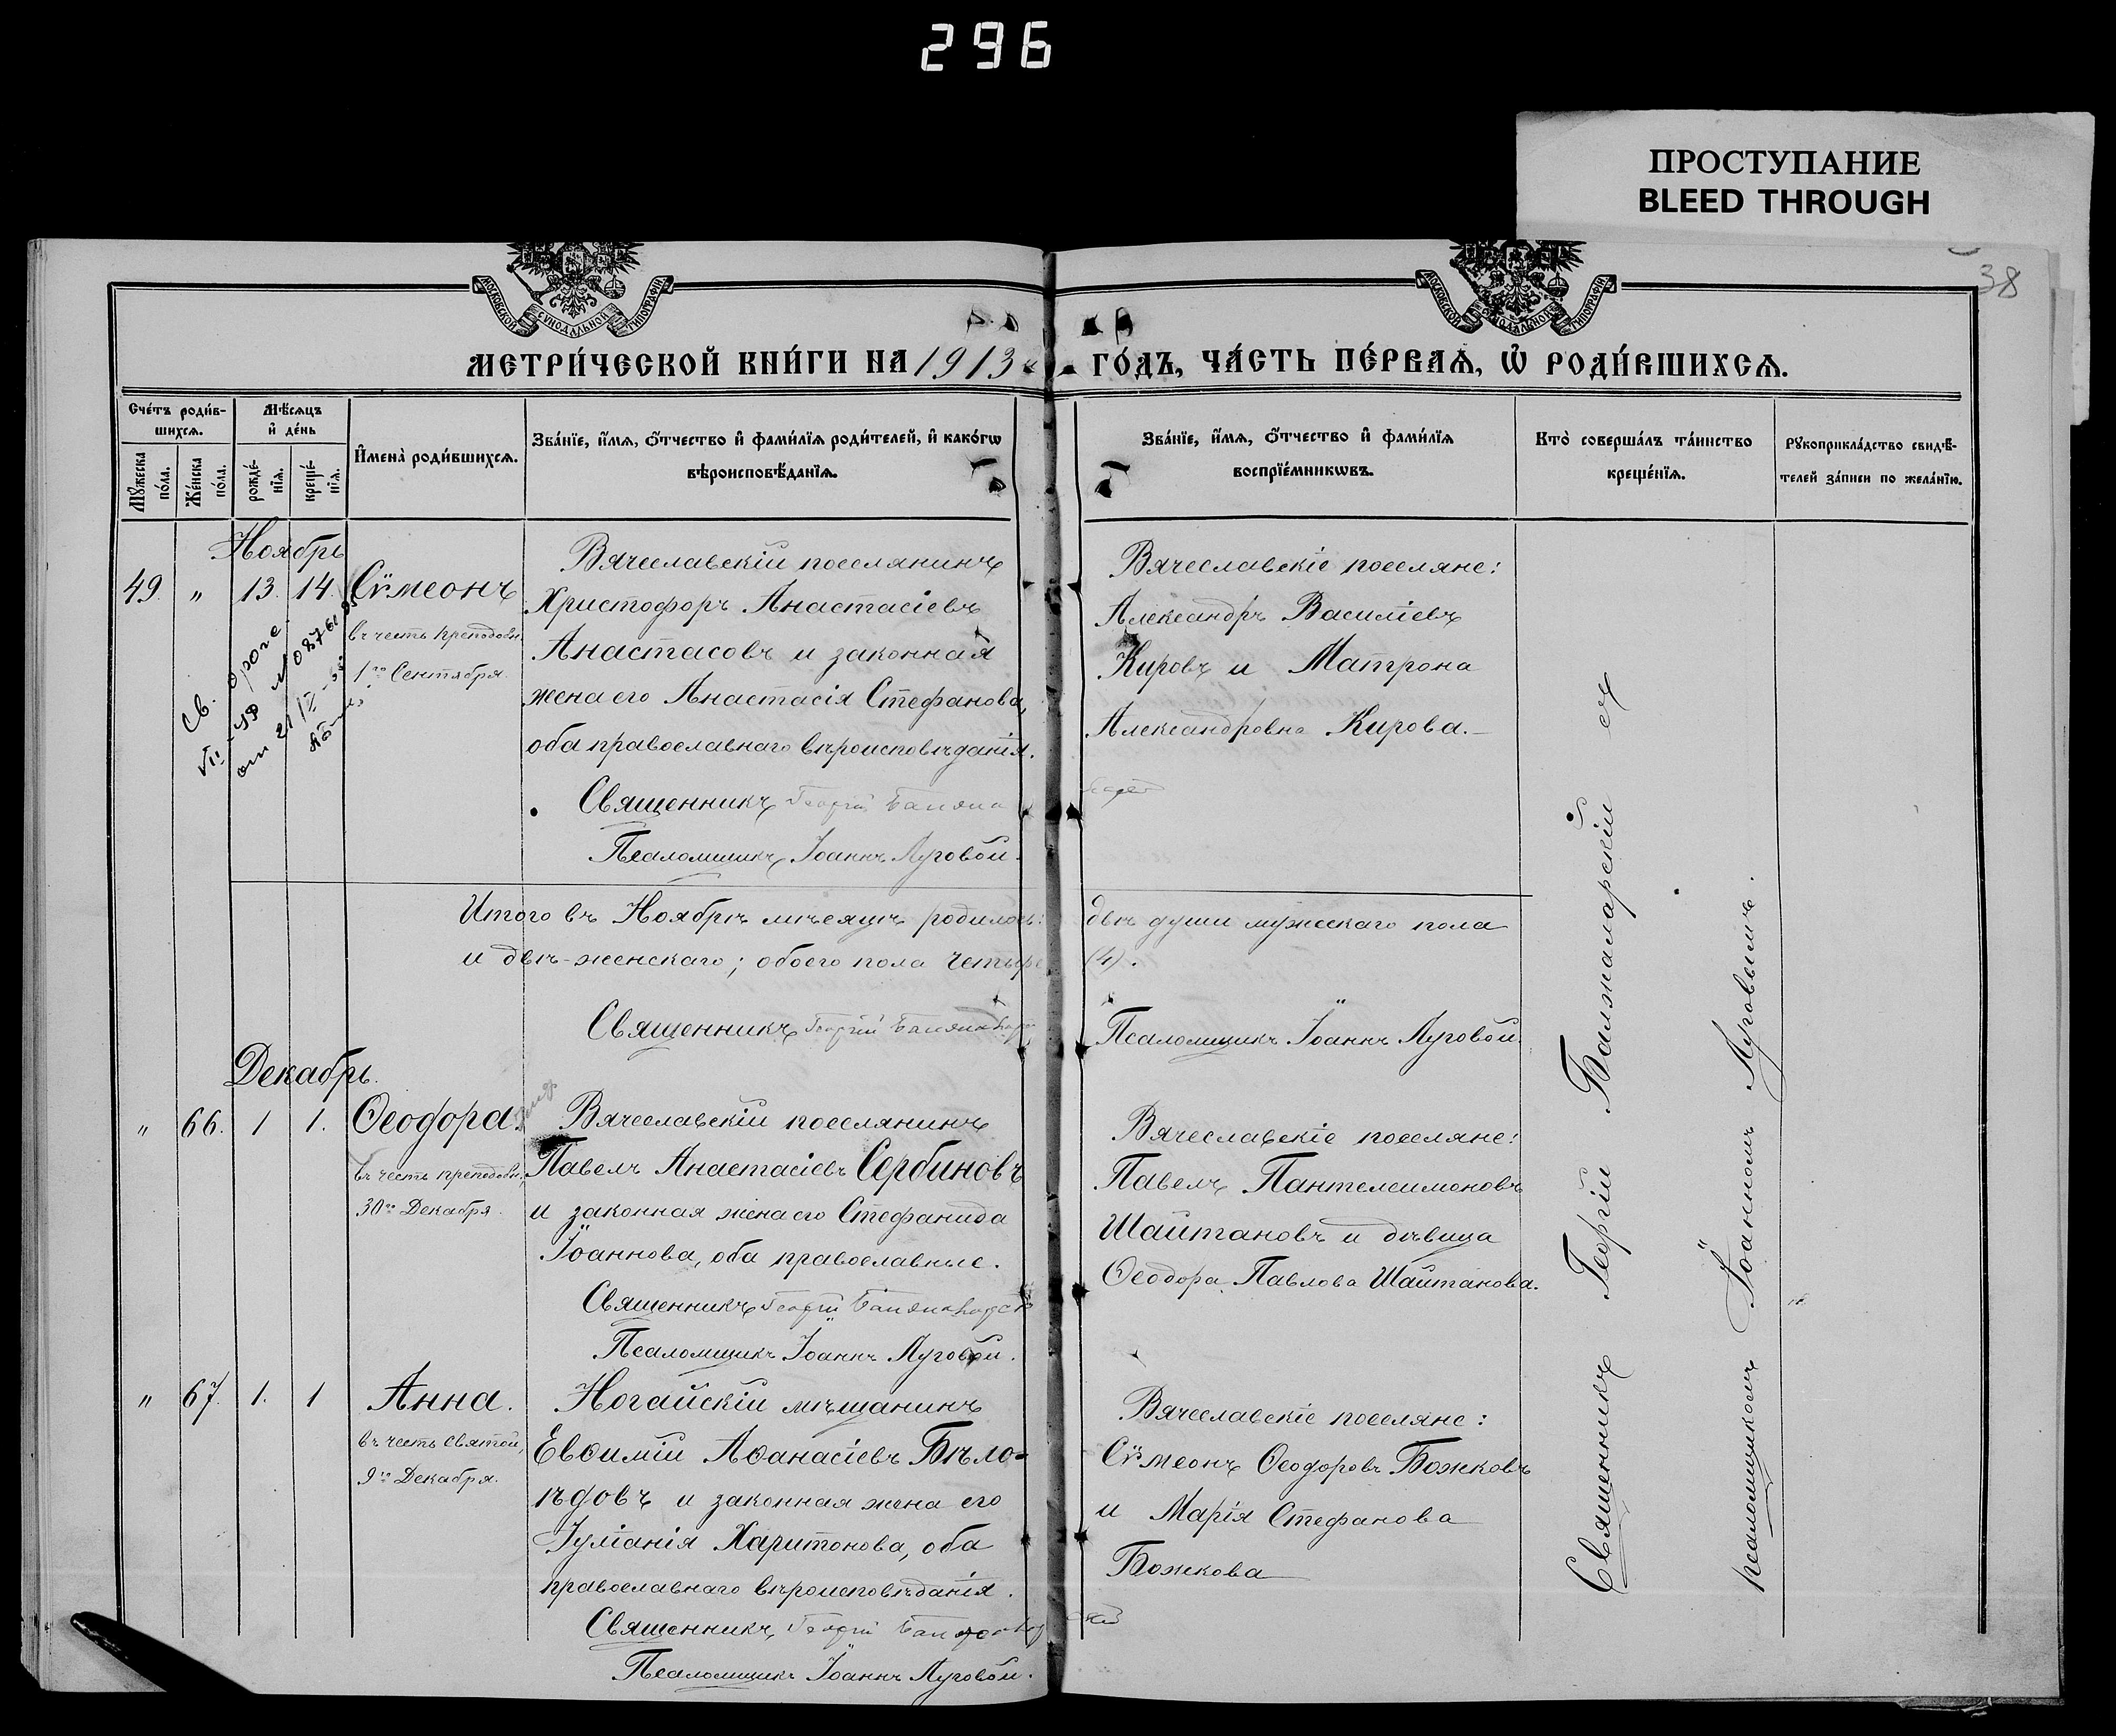 296
ПРОСТУПАНИЕ
BLEED THROUGH
38
МОСКОВСКОЙ СУНОДАЛЬНОЙ ТИПОГРАФІИ
МОСКОВСКОЙ СУНОДАЛЬНОЙ ТИПОГРАФІИ
МЕТРИ́ЧЕСКОЙ КНИ́ГИ НА 1913 ГО́ДЪ, ЧА́СТЬ ПЕ́РВАѦ, Ѡ҆ РОДИ́ВШИХСѦ.
Сче́тъ роди́в-
шихсѧ.
Мꙋ́жеска по́ла.
Же́нска по́ла.
Мѣ́сѧцъ
и҆ де́нь
рожде́-
нїѧ.
креще́-
нїѧ.
И҆мена̀ роди́вшихсѧ.
Зва́нїе, и҆́мѧ, ѻ҆́тчество и҆ фами́лїѧ роди́телей, и҆ како́гѡ
вѣроисповѣ́данїѧ.
Зва́нїе, и҆́мѧ, ѻ҆́тчество и҆ фами́лїѧ
воспрїе́мникѡвъ.
Кто̀ соверша́лъ та́инство
креще́нїѧ.
Рꙋкоприкла́дство свидѣ́-
телей за́писи по жела́нїю.
Ноябрь
49. " 13. 14. Сѵмеонъ
въ честь преподобн.
1го Сентября.
Вячеславскій поселянинъ
Христофоръ Анастасіевъ
Анастасовъ и законная
жена его Анастасія Стефанова,
оба православнаго вѣроисповѣданія.
Священникъ Георгій
Псаломщикъ Іоаннъ Луговой.
Вячеславскіе поселяне:
Александръ Василіевъ
Кировъ и Матрона
Александровна Кирова.
Итого въ Ноябрѣ мѣсяцѣ родилось: двѣ души мужескаго пола
и двѣ-женскаго; обоего пола четыре (4).
Священникъ Георгій
Псаломщикъ Іоаннъ Луговой.
Декабрь.
" 66. 1 1. Ѳеодора.
въ честь преподобн.
30го Декабря.
Вячеславскій поселянинъ
Павелъ Анастасіевъ Сербиновъ
и законная жена его Стефанида
Іоаннова, оба православные.
Священникъ Георгій
Псаломщикъ Іоаннъ Луговой.
Вячеславскіе поселяне:
Павелъ Пантелеимоновъ
Шайтановъ и дѣвица
Ѳеодора Павлова Шайтанова.
" 67. 1. 1 Анна.
въ честь святой,
9го Декабря.
Ногайскій мѣщанинъ
Евѳимій Аѳанасіевъ Бѣло-
ѣдовъ и законная жена его
Іуліанія Харитонова, оба
православнаго вѣроисповѣданія.
Священникъ Георгій
Псаломщикъ Іоаннъ Луговой.
Вячеславскіе поселяне:
Сѵмеонъ Ѳеодоровъ Божковъ
и Марія Стефанова
Божкова
Священникъ Георгій Балжаларскій съ
псаломщикомъ Іоанномъ Луговымъ.